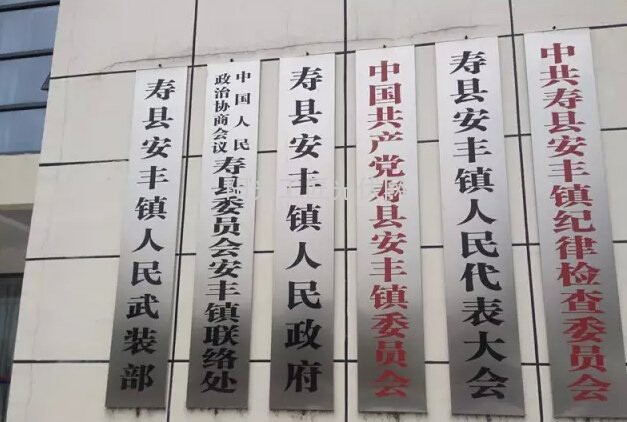 寿县安丰镇人民武装部
中国人民
政治协商会议
寿县委员会安丰镇联络处
寿县安丰镇人民政府
中国共产党寿县安丰镇委员会
寿县安丰镇人民代表大会
中共寿县安丰镇纪律检查委员会